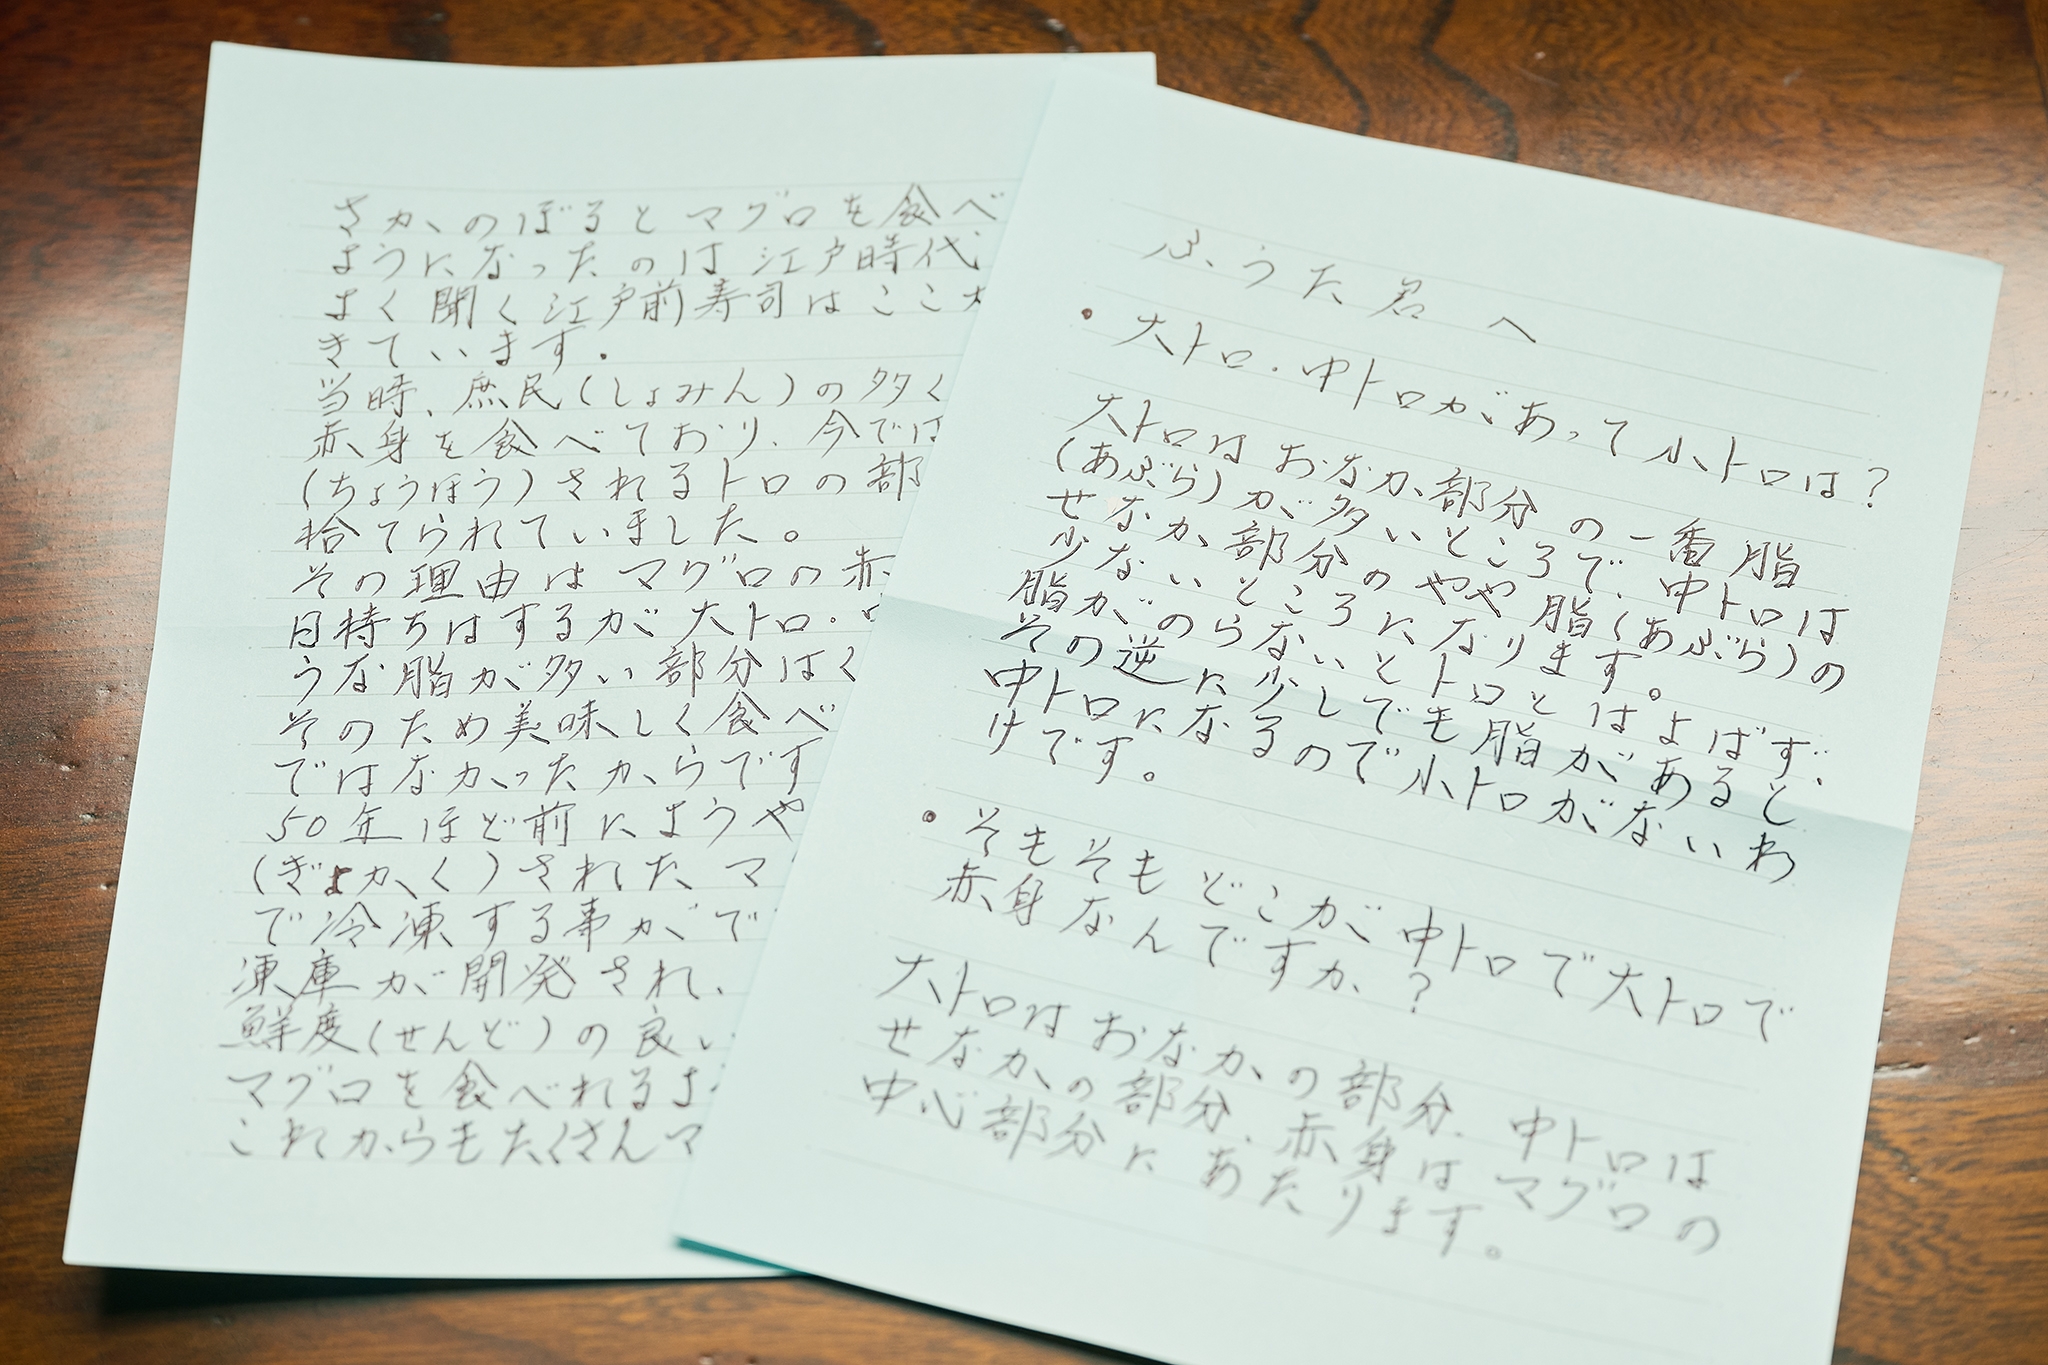 ふうた君へ
・大トロ・中トロがあって小トロは?
大トロはおなか部分の一番脂
(あぶら)が多いところで、中トロは
せなか部分のやや脂(あぶら)の
少ないところになります。
脂がのらないとトロとはよばず、
その逆に少しでも脂があると
中トロになるので小トロがないわ
けです。
・そもそもどこが中トロで大トロで
赤身なんですか?
大トロはおなかの部分、中トロは
せなかの部分、赤身はマグロの
中心部分にあたります。
さかのぼるとマグロを食べ
ようになったのは江戸時代
よく聞く江戸前寿司はここ
きています。
当時、庶民(しょみん)の多く
赤身を食べており、今では
(ちょうほう)されるトロの部
捨てられていました。
その理由はマグロの赤
日持ちはするが大トロ・
うな脂が多い部分はく
そのため美味しく食べ
ではなかったからです
50年ほど前にようや
(ぎょかく)されたマ
で冷凍する事がで
凍庫が開発され、
鮮度(せんど)の良い
マグロを食べれるよ
これからもたくさんマ